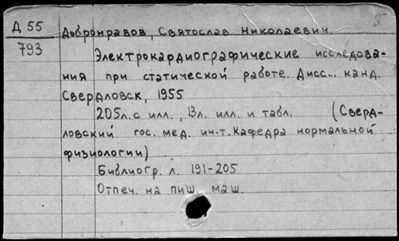 Д 55 Добронравов, Святослав Николаевич.
793 Электрокардиографические исследова-
ния при статической работе. Дисс... канд.
Свердловск, 1955
205 л. с илл., 13 л. илл. и табл. (Сверд-
ловский гос. мед. ин-т. Кафедра нормальной
физиологии)
Библиогр. л. 191-205
Отпеч. на пиш. маш.